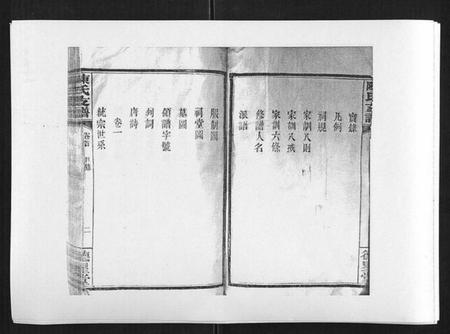 陳氏支譜
實錄
凡例
祠規
家訓八則
家訓八戒
家訓六條
修譜人名
派語
服制圖
祠堂圖
墓圖
領譜字號
列詞
唐詩
卷一
統宗世系
陳氏支譜
二
德星堂